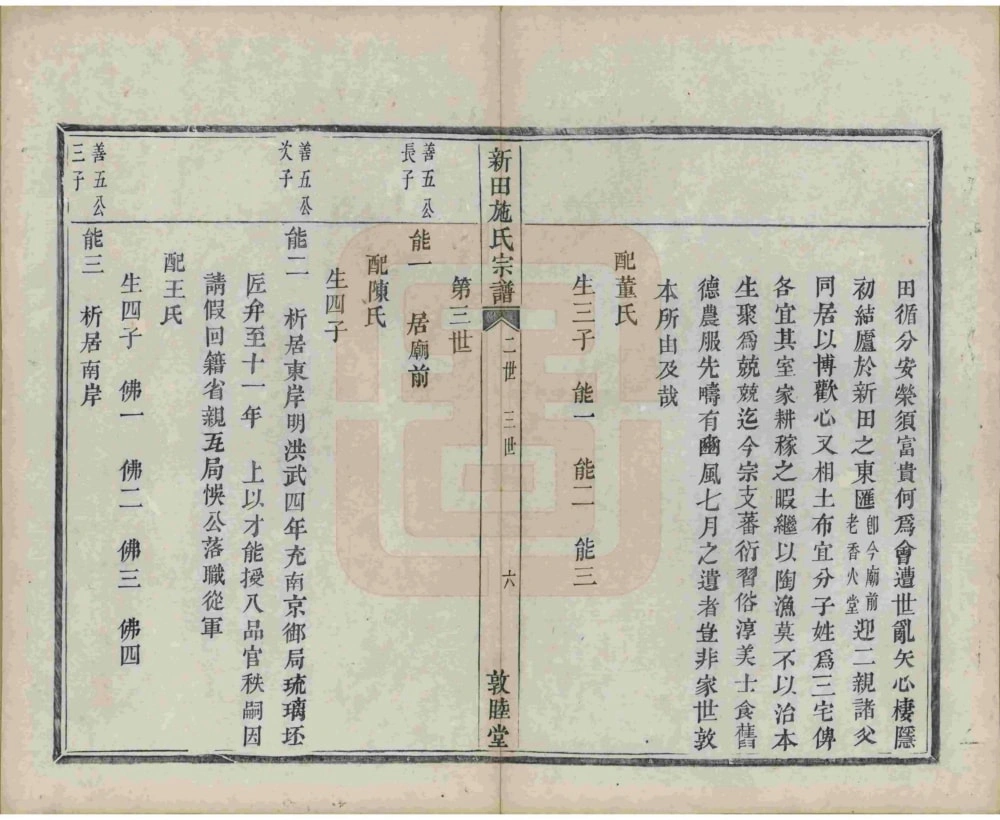 田循分安榮須富貴何爲會遭世亂矢心棲隱
初結廬於新田之東匯卽今廟前老香火堂迎二親諸父
同居以博歡心又相土布宜分子姓爲三宅俾
各宜其室家耕稼之暇繼以陶漁莫不以治本
生聚爲兢兢迄今宗支蕃衍習俗淳美士食舊
德農服先疇有豳風七月之遺者豈非家世敦
本所由及哉
配董氏
生三子 能一 能二 能三
新田施氏宗譜 二世 三世 六 敦睦堂
第三世
善五公長子
能一 居廟前
配陳氏
生四子
善五公次子
能二 析居東岸明洪武四年充南京御局琉璃坯
匠弁至十一年 上以才能授八品官秩嗣因
請假回籍省親瓦局悞公落職從軍
配王氏
生四子 佛一 佛二 佛三 佛四
善五公三子
能三 析居南岸